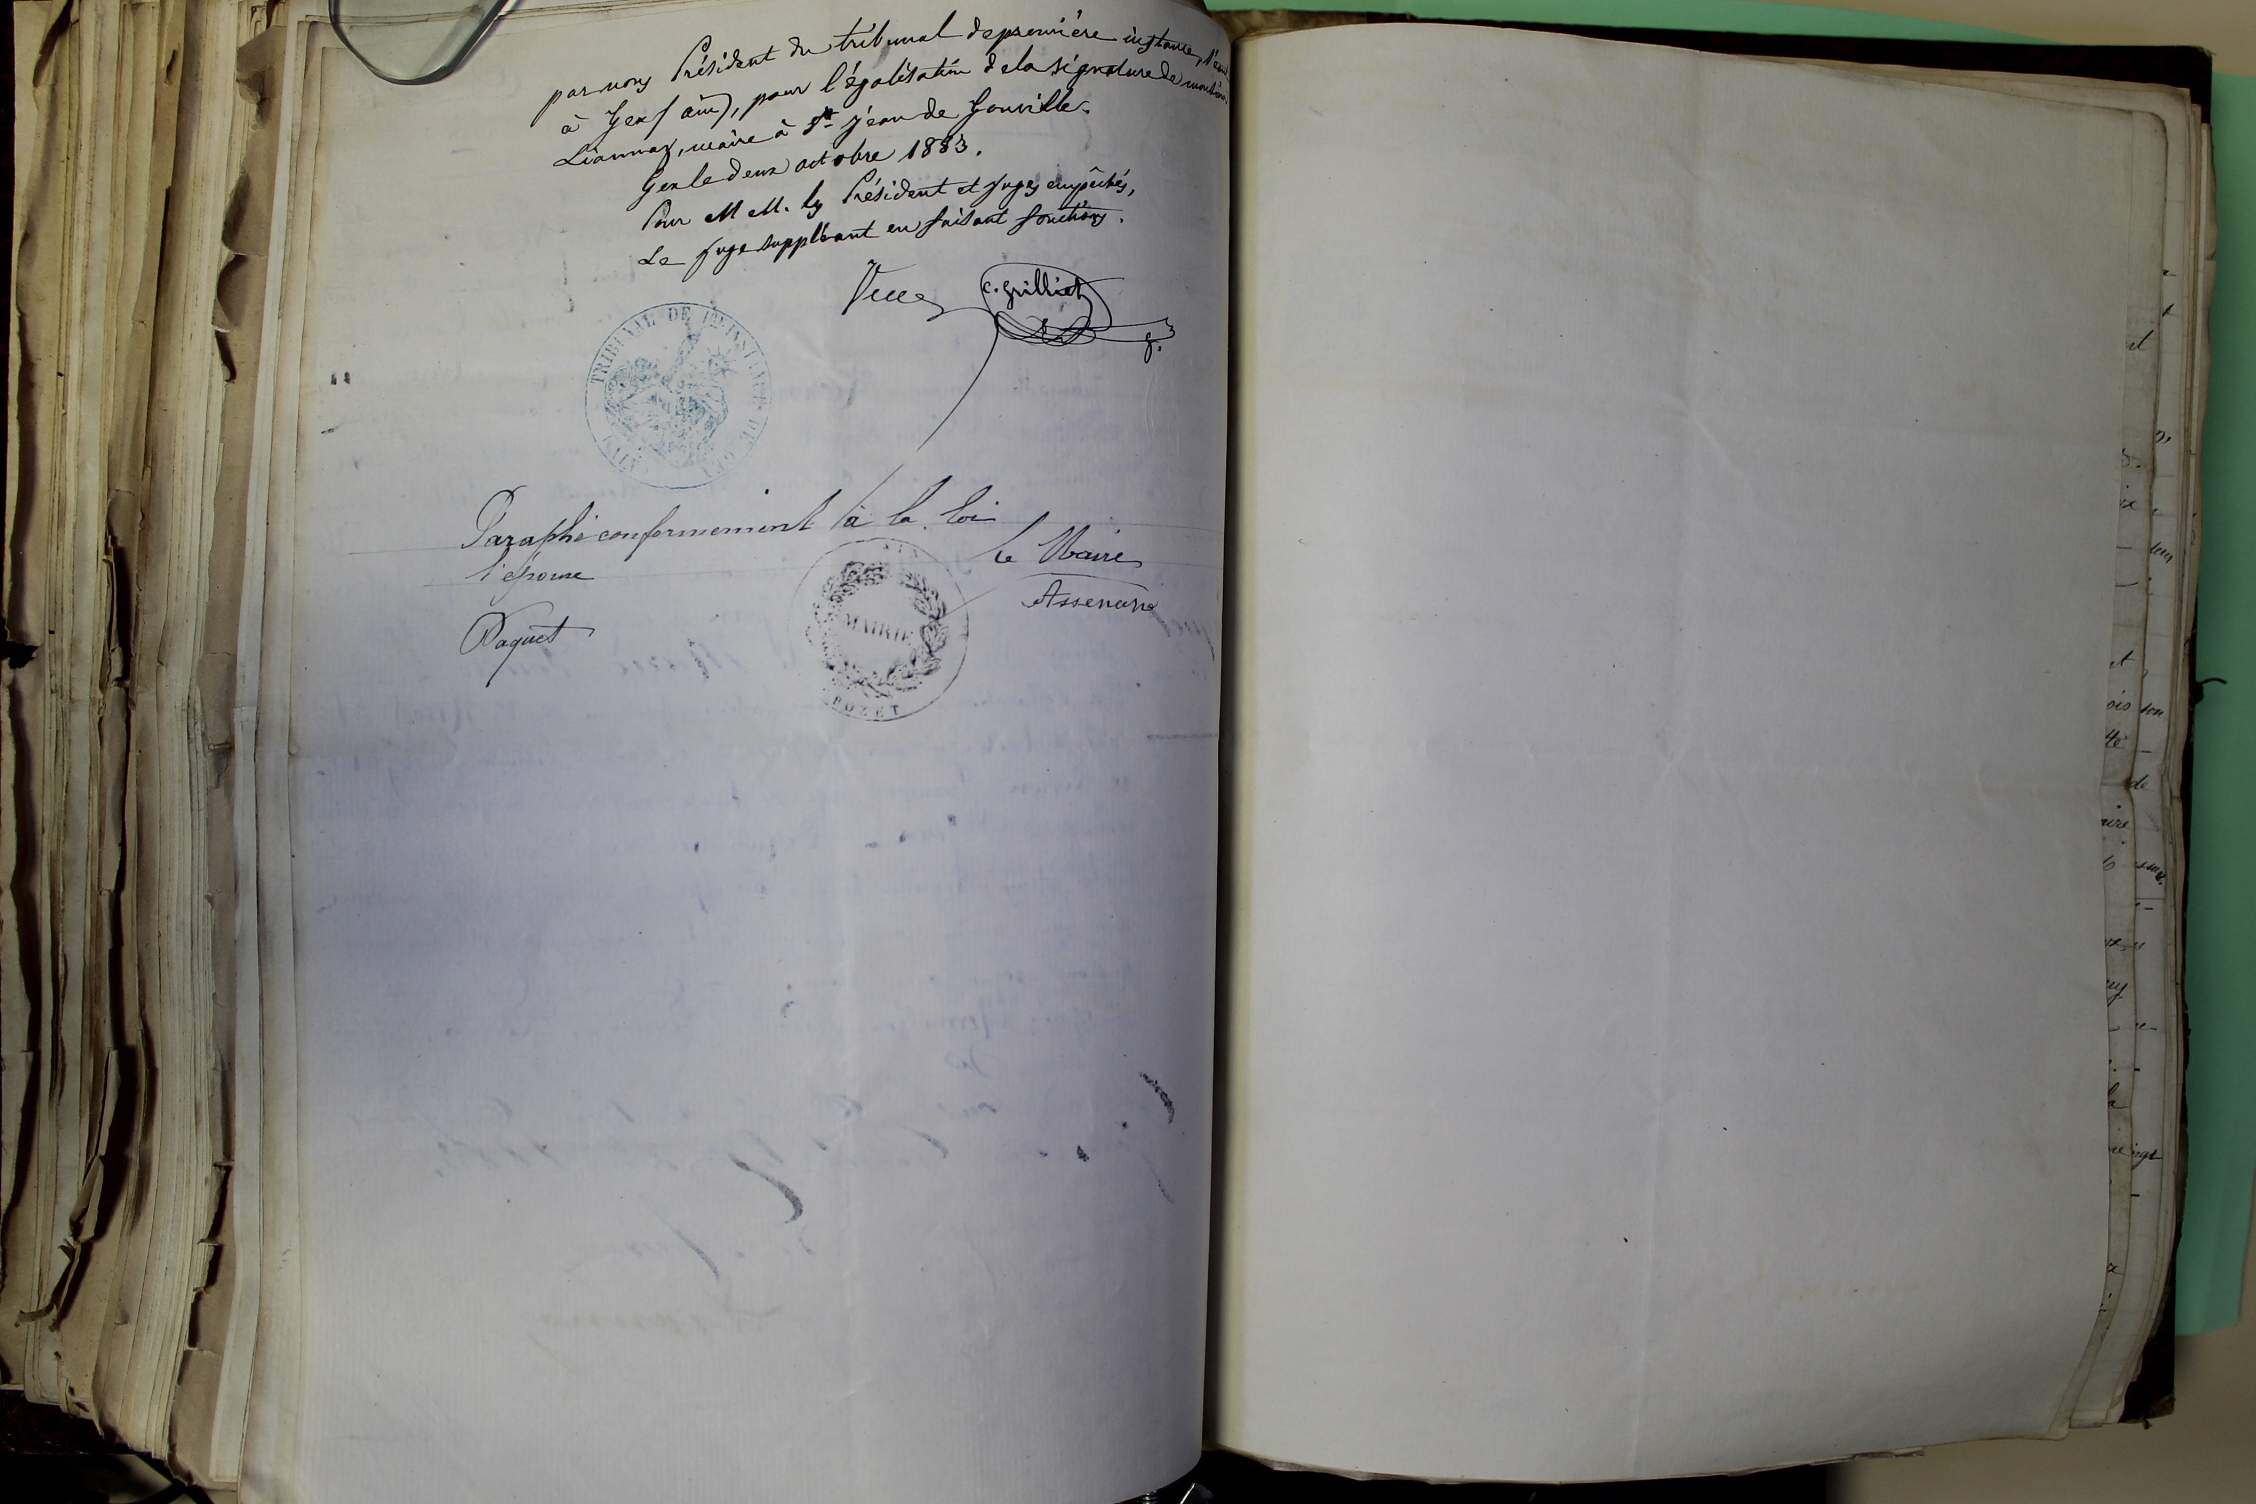 par nous Président du tribunal de première instance, séant
à Gex (ain), pour légalisation de la signature de monsieur
Liannaz, maire à St. Jean de Gonville.
Gex le deux octobre 1883.
Pour MM. les Président et juges empêchés,
Le juge suppléant en faisant fonctions.
C. Grilliet
TRIBUNAL DE 1RE INSTANCE DE GEX (AIN)
Paraphé conformement à la loi
l'épouse
le Maire
Paquet
MAIRIE
AIN